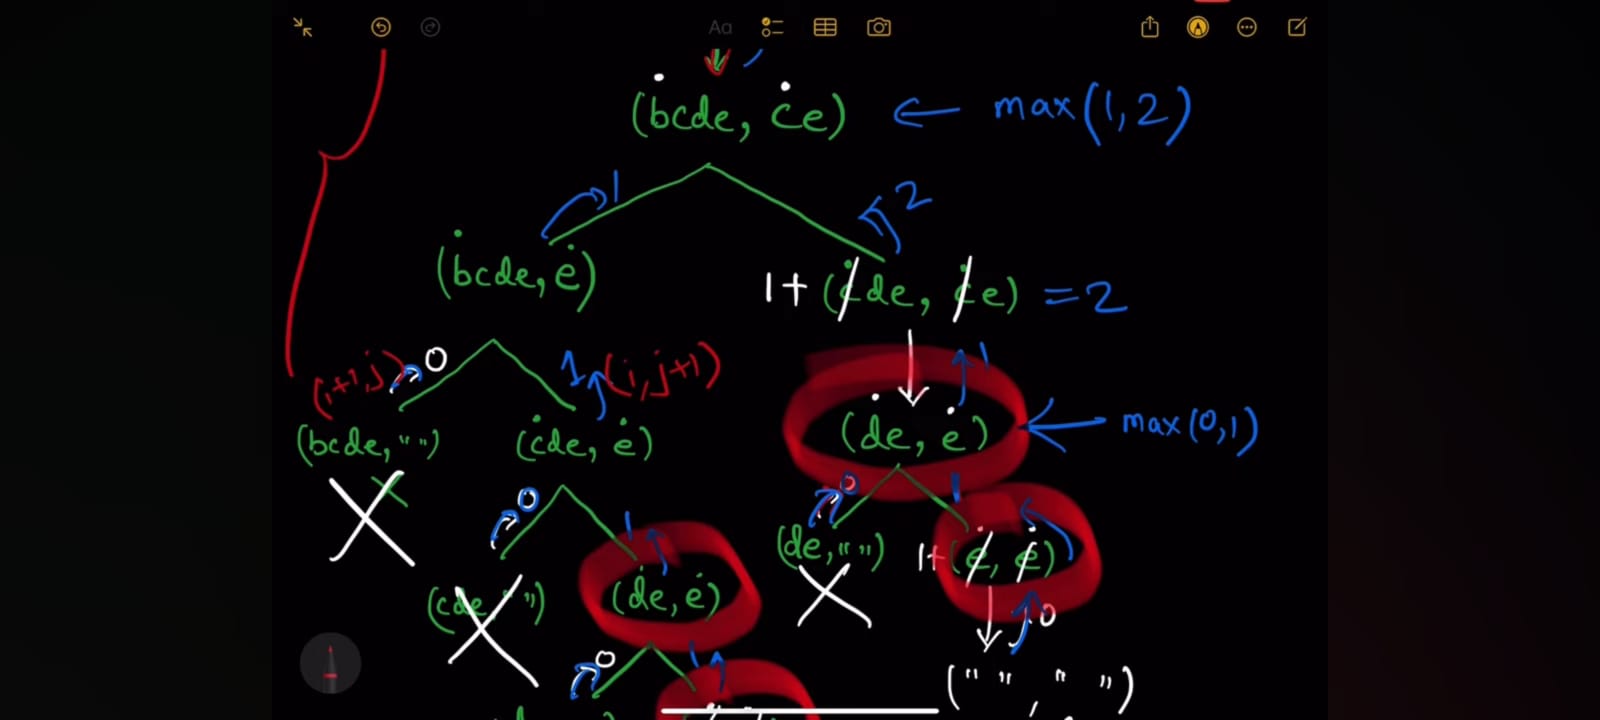 Aa
(bcde, ce) ← max(1,2)
1
2
(bcde, e)
1+ (cde, ce) = 2
(i+1,j) 0
1 (i,j+1)
1
(bcde, "")
(cde, e)
(de, e) ← max(0,1)
0
1
0
1
(de, "")
1+ (e, e)
(cde, "")
(de, e)
0
0
1
("", "")